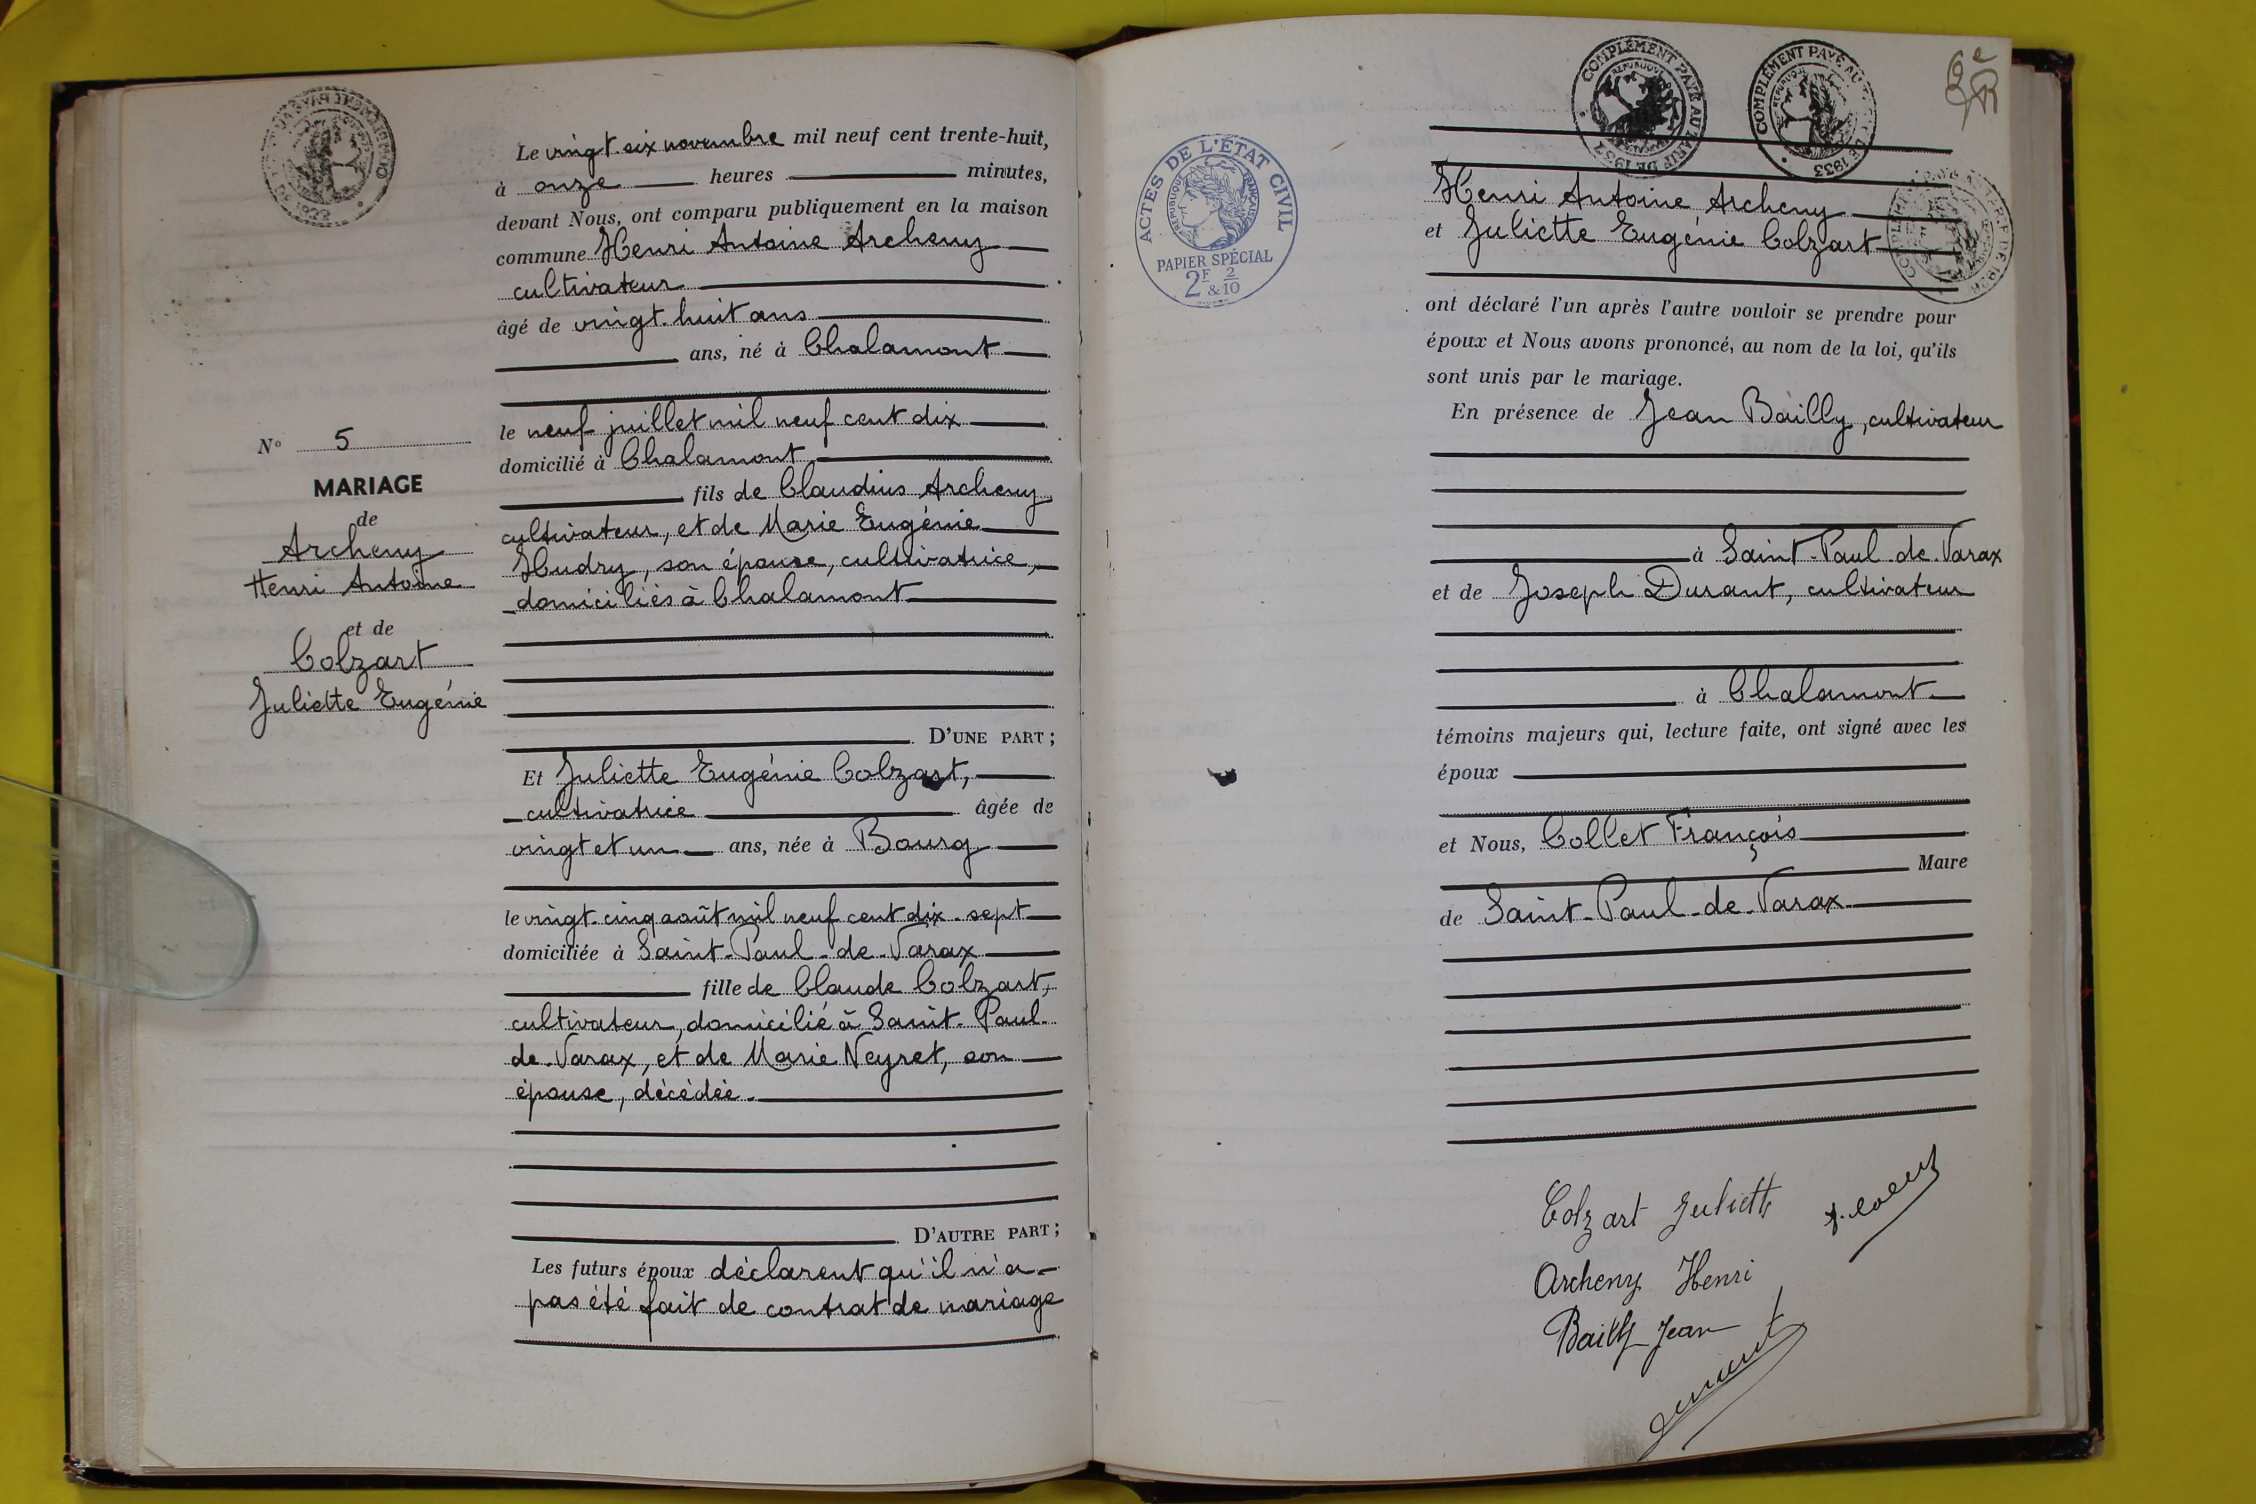 Le vingt-six novembre mil neuf cent trente-huit,
à onze heures minutes,
devant Nous, ont comparu publiquement en la maison
commune Henri Antoine Archeny
cultivateur
âgé de vingt-huit ans
ans, né à Chalamont
le neuf juillet mil neuf cent dix
domicilié à Chalamont
fils de Claudius Archeny
cultivateur, et de Marie Eugénie
Hudry, son épouse, cultivatrice,
domiciliés à Chalamont
D'UNE PART ;
Et Juliette Eugénie Colzart,
cultivatrice âgée de
vingt et un ans, née à Bourg
le vingt-cinq août mil neuf cent dix-sept
domiciliée à Saint-Paul-de-Varax
fille de Claude Colzart,
cultivateur, domicilié à Saint-Paul-
de-Varax, et de Marie Neyret, son
épouse, décédée.
D'AUTRE PART ;
Les futurs époux déclarent qu'il n'a
pas été fait de contrat de mariage
N° 5
MARIAGE
de
Archeny
Henri Antoine
et de
Colzart
Juliette Eugénie
ACTES DE L'ÉTAT CIVIL
RÉPUBLIQUE FRANÇAISE
PAPIER SPÉCIAL
2F & 2/10
COMPLÉMENT PAYÉ AU TARIF DE 1933
COMPLÉMENT PAYÉ AU DE 1933
Henri Antoine Archeny
et Juliette Eugénie Colzart
ont déclaré l'un après l'autre vouloir se prendre pour
époux et Nous avons prononcé, au nom de la loi, qu'ils
sont unis par le mariage.
En présence de Jean Bailly, cultivateur
à Saint-Paul-de-Varax
et de Joseph Durant, cultivateur
à Chalamont
témoins majeurs qui, lecture faite, ont signé avec les
époux
et Nous, Collet François
Maire
de Saint-Paul-de-Varax
Colzart Juliette
Archeny Henri
Bailly Jean